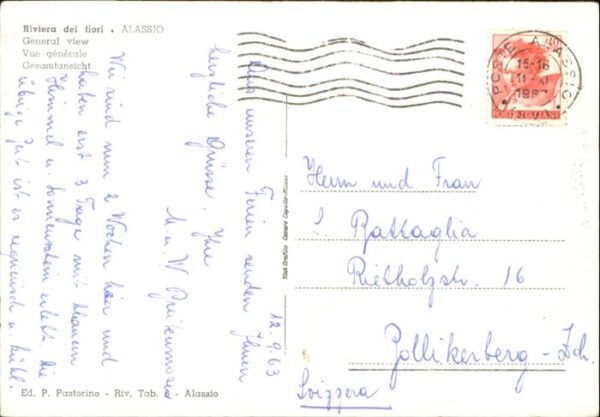 Riviera dei fiori • ALASSIO
General view
Vue générale
Gesamtansicht
POSTE ALASSIO
15-16
11-XI
196
POSTE ITALIANE
12.9.63
Aus unseren Ferien senden Ihnen
herzliche Grüsse, Ihre
M. u. W.
Wir sind nun 2 Wochen hier und
haben erst 3 Tage mit blauem
Himmel u. Sonnenschein erlebt. Die
übrige Zeit ist es regnerisch u. kühl.
Herrn und Frau
L. Battaglia
Rietholzstr. 16
Zollikerberg - Zch.
Svizzera
Cesare Capello - Milano
Ed. P. Pastorino - Riv. Tab. 6 - Alassio